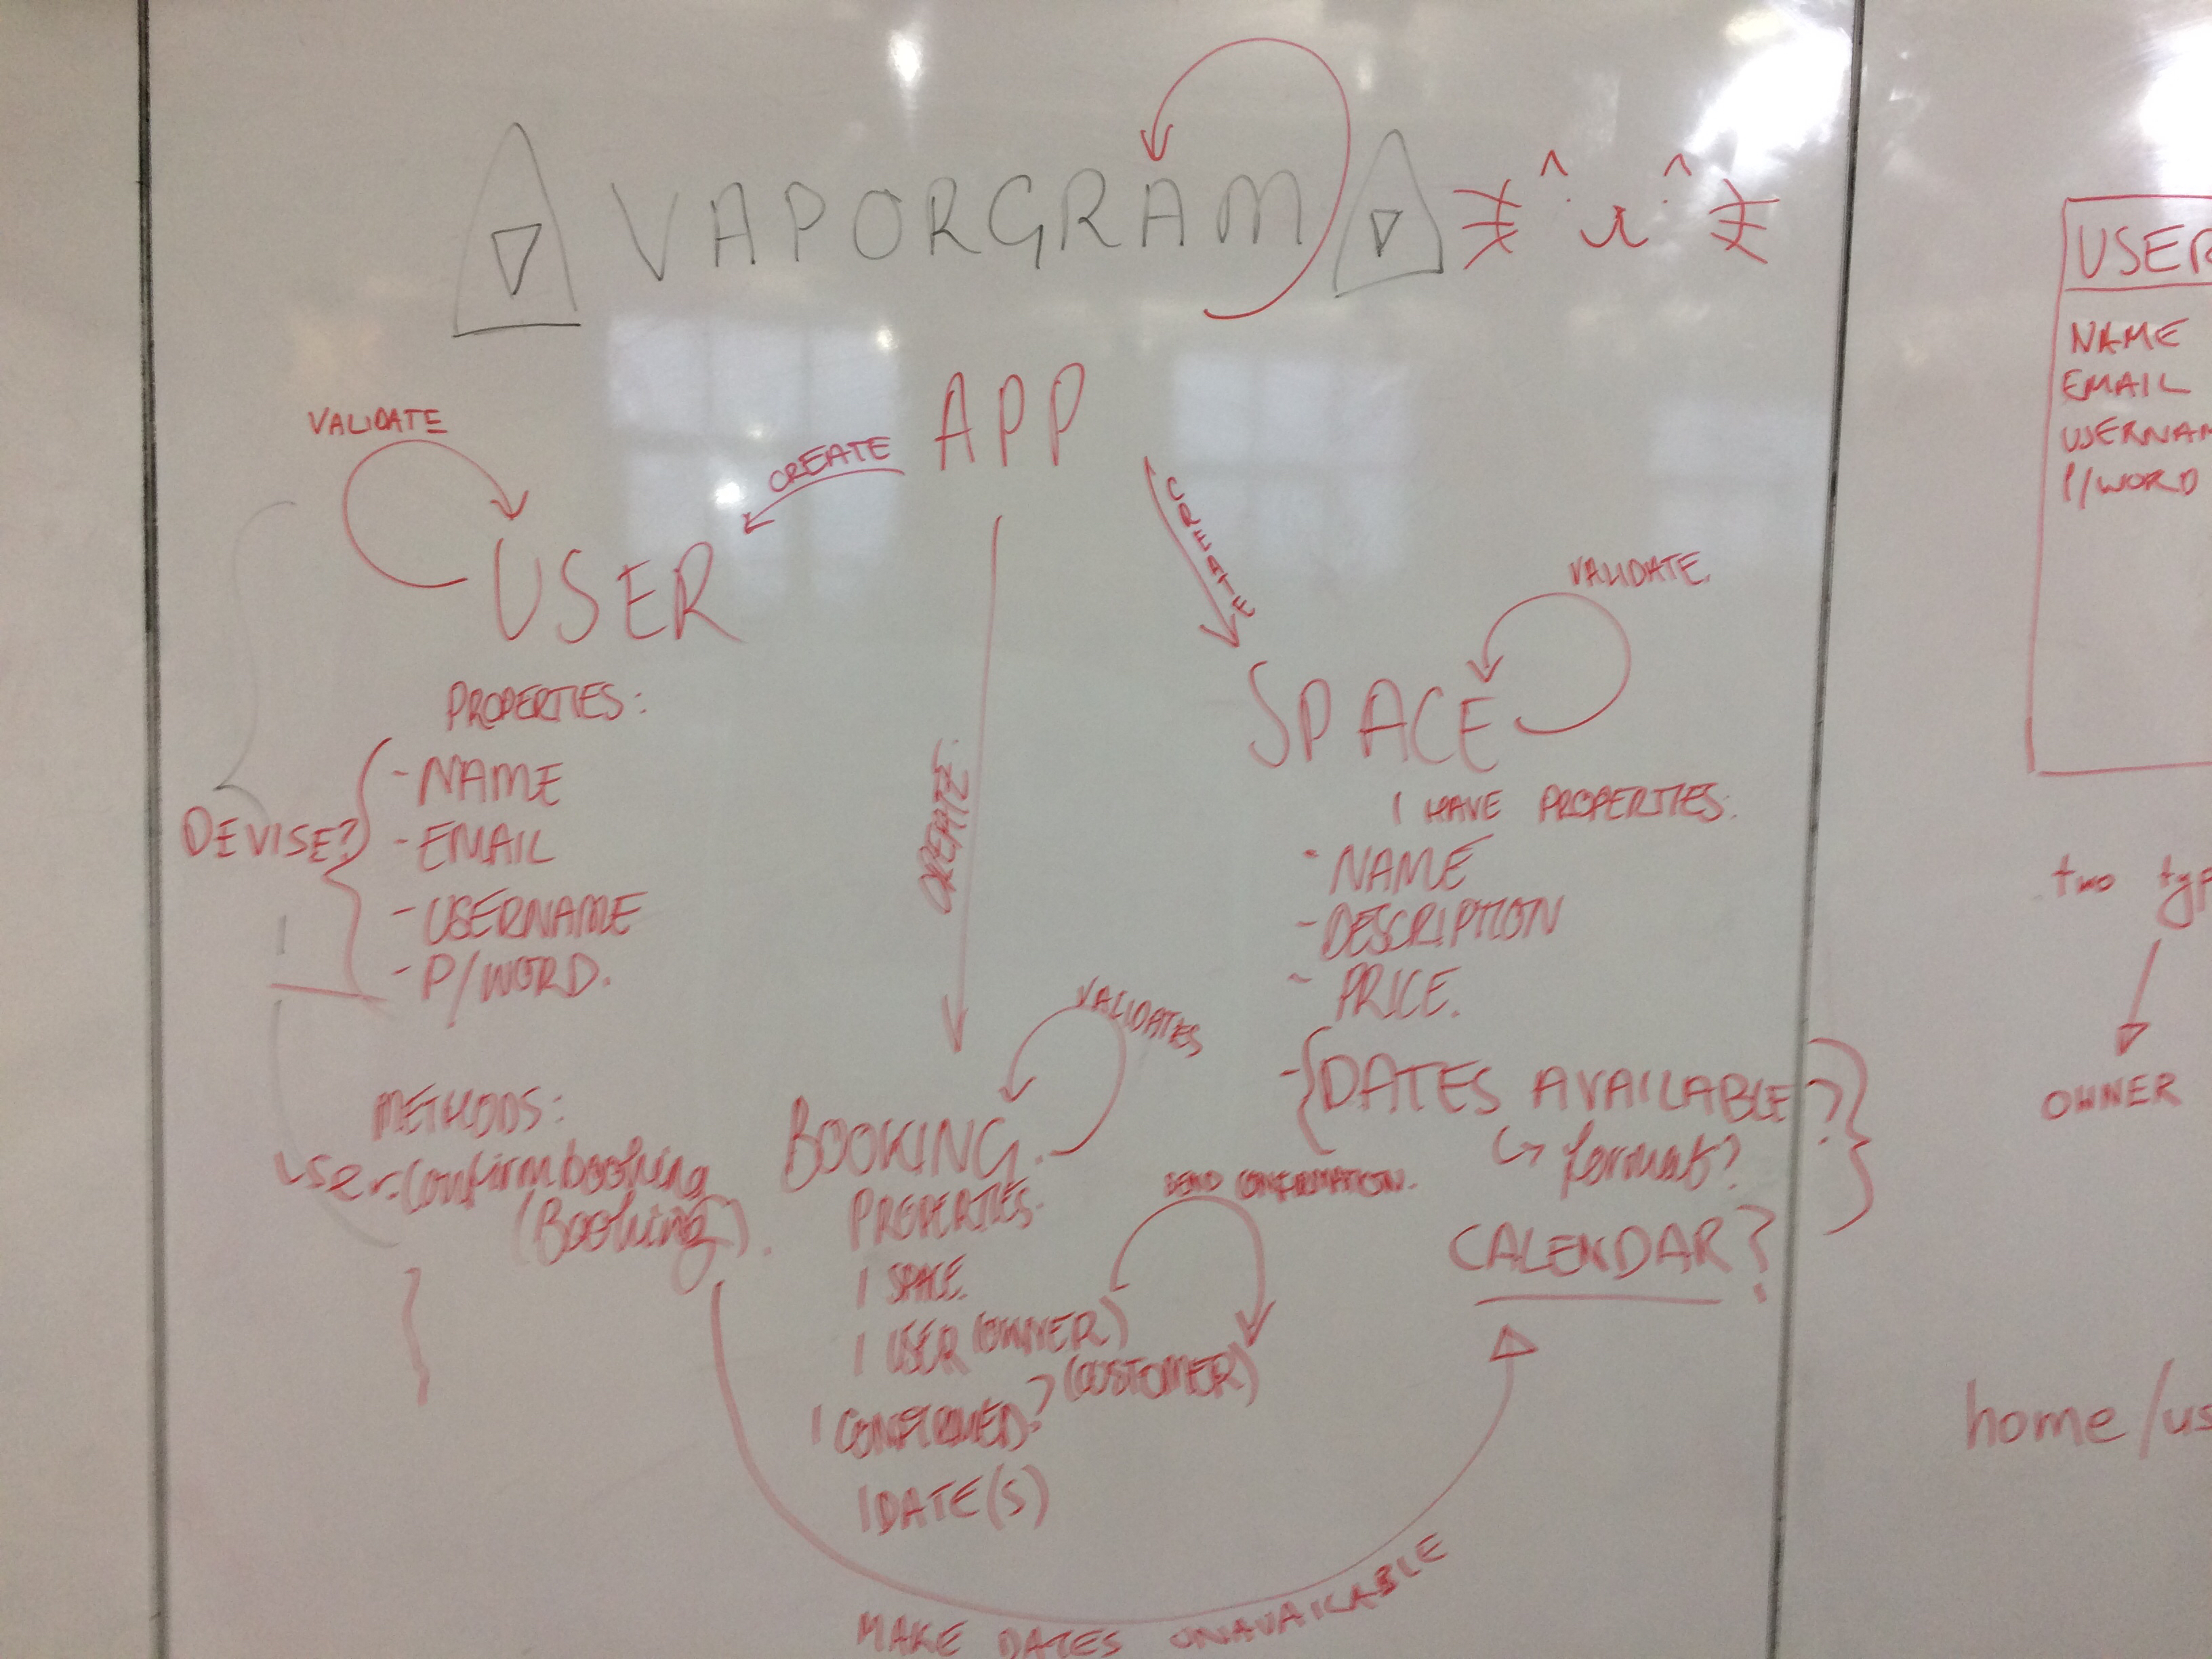 VAPORGRAM
APP
CREATE
CREATE
CREATE.
VALIDATE
USER
PROPERTIES:
DEVISE?
- NAME
- EMAIL
- USERNAME
- P/WORD.
METHODS:
user.confirmbooking
(Booking).
VALIDATE.
SPACE
I HAVE PROPERTIES:
- NAME
- DESCRIPTION
- PRICE.
- DATES AVAILABLE?
format?
CALENDAR?
VALIDATES
BOOKING.
PROPERTIES:
1 SPACE
1 USER (OWNER)
(CUSTOMER)
SEND CONFIRMATION.
1 CONFIRMED?
1 DATE(S)
MAKE DATES UNAVAILABLE
USER
NAME
EMAIL
USERNAM
P/WORD
two typ
OWNER
home/us